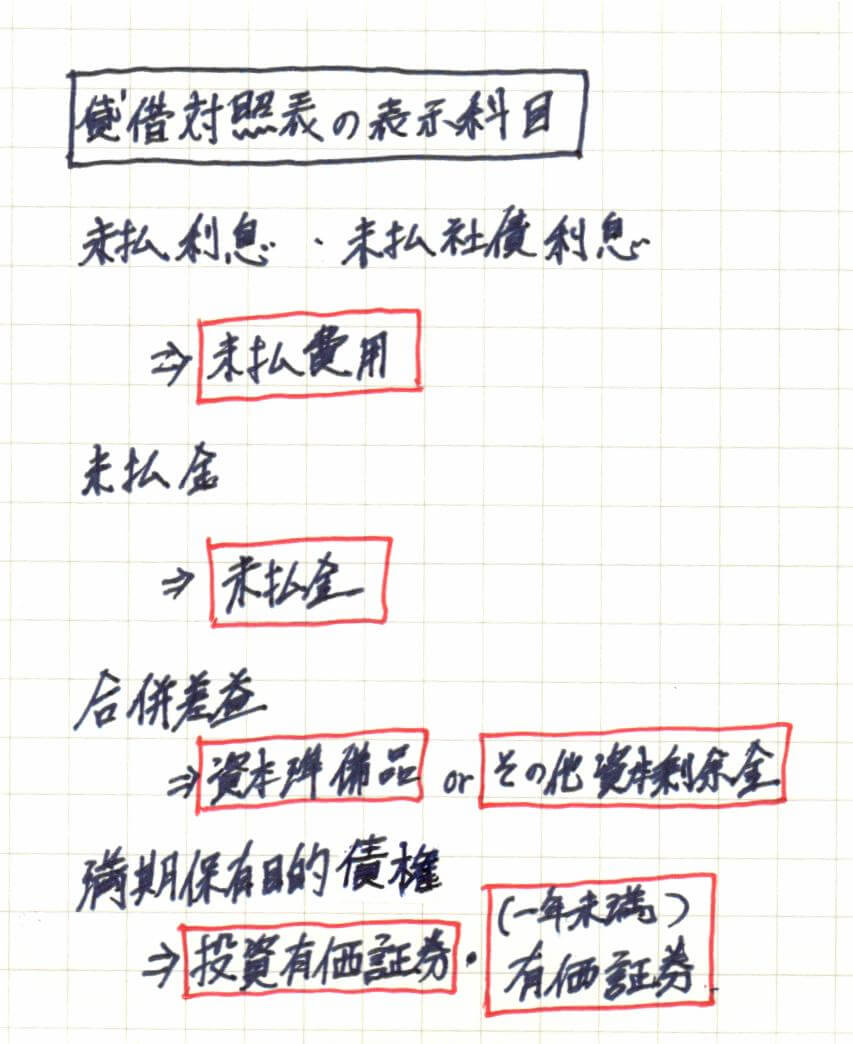 貸借対照表の表示科目
未払利息・未払社債利息
⇒ 未払費用
未払金
⇒ 未払金
合併差益
⇒ 資本準備品 or その他資本剰余金
満期保有目的債権
⇒ 投資有価証券・(一年未満)
有価証券